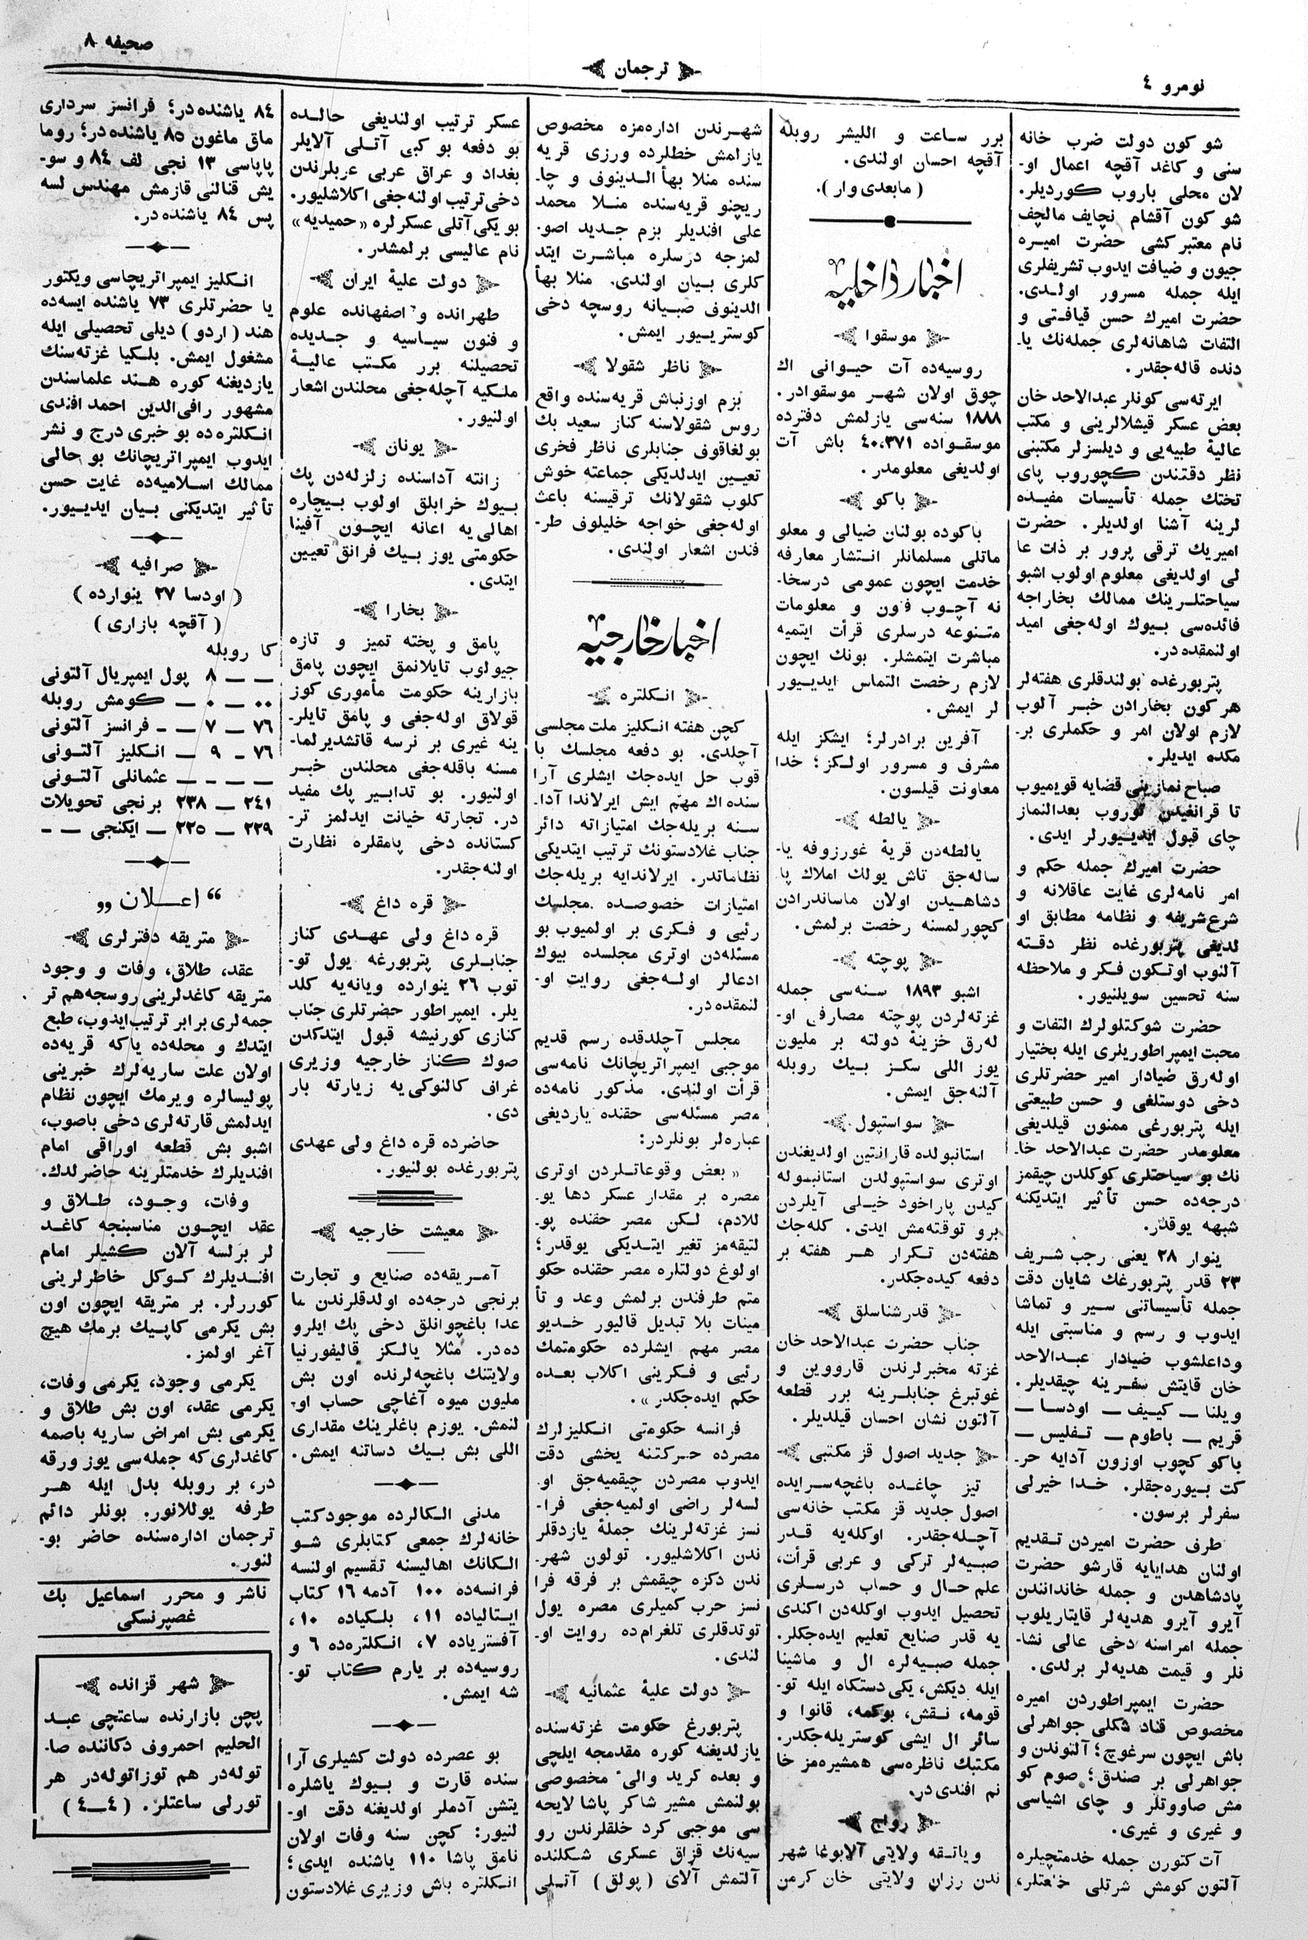 صحیفه ۸
ترجمان
نومرو ۴
شو كون دولت ضرب خانه
سنی و كاغد آقچه اعمال او-
لان محلی باروب كوردیلر.
شو كون آقشام نچایف مالچف
نام معتبر كشی حضرت امیره
جیون و ضیافت ایدوب تشریفلری
ایله جمله مسرور اولدی.
حضرت امیرك حسن قیافتی و
التفات شاهانه‌لری جمله‌نك یا-
دنده قاله‌جقدر.
ایرته‌سی كونلر عبدالاحد خان
بعض عسكر قیشلالرینی و مكتب
عالیهٔ طبیه‌یی و دیلسزلر مكتبنی
نظر دقتندن كچوروب پای
تختك جمله تأسیسات مفیده
لرینه آشنا اولدیلر. حضرت
امیریك ترقی پرور بر ذات عا
لی اولدیغی معلوم اولوب اشبو
سیاحتلرینك ممالك بخاراجه
فائده‌سی بیوك اوله‌جغی امید
اولنمقده در.
پتربورغده بولندقلری هفته‌لر
هركون بخارادن خبر آلوب
لازم اولان امر و حكملری بر-
مكده ایدیلر.
صباح نمازینی قضایه قویمیوب
تا قرانغیدن توروب بعدالنماز
چای قبول ایدیورلر ایدی.
حضرت امیرك جمله حكم و
امر نامه‌لری غایت عاقلانه و
شرع شریفه و نظامه مطابق او
لدیغی پتربورغده نظر دقته
آلنوب اوتكون فكر و ملاحظه
سنه تحسین سویلنیور.
حضرت شوكتلولرك التفات و
محبت ایمپراطوریلری ایله بختیار
اوله‌رق ضیادار امیر حضرتلری
دخی دوستلغی و حسن طبیعتی
ایله پتربورغی ممنون قیلدیغی
معلومدر حضرت عبدالاحد خا-
نك بو سیاحتلری كوكلدن چیقمز
درجه‌ده حسن تأثیر ایتدیكنه
شبهه یوقدر.
ینوار ۲۸ یعنی رجب شریف
۲۳ قدر پتربورغك شایان دقت
جمله تأسیساتنی سیر و تماشا
ایدوب و رسم و مناسبتی ایله
وداعلشوب ضیادار عبدالاحد
خان قایتش سفرینه چیقدیلر.
ویلنا — كییف — اودسا —
قریم — باطوم — تفلیس —
باكو كچوب اوزون آدایه حر-
كت بیوره‌جقلر. خدا خیرلی
سفرلر برسون.
طرف حضرت امیردن تقدیم
اولنان هدایایه قارشو حضرت
پادشاهدن و جمله خانداننِدن
آیرو آیرو هدیه‌لر قایتاریلوب
جمله امراسنه دخی عالی نشا-
نلر و قیمت هدیه‌لر برلدی.
حضرت ایمپراطوردن امیره
مخصوص قناد شكلی جواهرلی
باش ایچون سرغوچ؛ آلتوندن و
جواهرلی بر صندق؛ صوم كو
مش صاووتلر و چای اشیاسی
و غیری و غیری.
آت كتورن جمله خدمتچیلره
آلتون كومش شرتلی خلعتلر،
برر ساعت و اللیشر روبله
آقچه احسان اولندی.
( مابعدی وار ).
اخبار داخلیه
موسقوا
روسیه‌ده آت حیوانی اك
چوق اولان شهر موسقوادر.
۱۸۸۸ سنه‌سی یازلمش دفترده
موسقواده ۴۰،۳۷۱ باش آت
اولدیغی معلومدر.
باكو
باكوده بولنان ضیالی و معلو
ماتلی مسلمانلر انتشار معارفه
خدمت ایچون عمومی درسخا-
نه آچوب فنون و معلومات
متنوعه درسلری قرأت ایتمیه
مباشرت ایتمشلر. بونك ایچون
لازم رخصت التماس ایدیور
لر ایمش.
آفرین برادرلر؛ ایشكز ایله
مشرف و مسرور اولكز؛ خدا
معاونت قیلسون.
یالطه
یالطه‌دن قریهٔ غورزوفه یا-
ساله‌جق تاش یولك املاك پا
دشاهیدن اولان ماساندرادن
كچورلمسنه رخصت برلمش.
پوچته
اشبو ۱۸۹۳ سنه‌سی جمله
غزته‌لردن پوچته مصارفی او-
له‌رق خزینهٔ دولته بر ملیون
یوز اللی سكز بیك روبله
آلنه‌جق ایمش.
سواستپول
استانبولده قارانتین اولدیغندن
اوتری سواستپولدن استانبوله
كیدن پاراخود خیلی آیلردن
برو توقته‌مش ایدی. كله‌جك
هفته‌دن تكرار هر هفته بر
دفعه كیده‌جكدر.
قدرشناسلق
جناب حضرت عبدالاحد خان
غزته مخبرلرندن قارووین و
غوتبرغ جنابلرینه برر قطعه
آلتون نشان احسان قیلدیلر.
جدید اصول قز مكتبی
تیز چاغده باغچه‌سرایده
اصول جدید قز مكتب خانه‌سی
آچله‌جقدر. اوكله‌یه قدر
صبیه‌لر تركی و عربی قرأت،
علم حال و حساب درسلری
تحصیل ایدوب اوكله‌دن اكندی
یه قدر صنایع تعلیم ایده‌جكلر.
جمله صبیه‌لره ال و ماشینا
ایله دیكش، یكی دستگاه ایله تو-
قومه، نقش، بوكمه، قانوا و
سائر ال ایشی كوستریله‌جكدر.
مكتبك ناظره‌سی همشیره‌مز خا
نم افندی در.
رواج
ویاتقه ولایتی آلابوغا شهر
ندن رزان ولایتی خان كرمن
شهرندن اداره‌مزه مخصوص
یازلمش خطلرده ورزی قریه
سنده منلا بهأ الدینوف و چا-
ریچنو قریه‌سنده منلا محمد
علی افندیلر بزم جدید اصو.
لمزجه درسلره مباشرت ایتد
كلری بیان اولندی. منلا بهأ
الدینوف صبیانه روسچه دخی
كوستریور ایمش.
ناظر شقولا
بزم اوزنباش قریه‌سنده واقع
روس شقولاسنه كناز سعید بك
بولغاقوف جنابلری ناظر فخری
تعیین ایدلدیكی جماعته خوش
كلوب شقولانك ترقیسنه باعث
اوله‌جغی خواجه خلیلوف طر-
فندن اشعار اولندی.
اخبار خارجیه
انكلتره
كچن هفته انكلیز ملت مجلسی
آچلدی. بو دفعه مجلسك با
قوب حل ایده‌جك ایشلری آرا
سنده‌اك مهم ایش ایرلاندا آدا-
سنه بریله‌جك امتیازاته دائر
جناب غلادستونك ترتیب ایتدیكی
نظاماتدر. ایرلاندایه بریله‌جك
امتیازات خصوصده مجلسك
رئیی و فكری بر اولمیوب بو
مسئله‌دن اوتری مجلسده بیوك
ادعالر اوله‌جغی روایت او-
لنمقده در.
مجلس آچلدقده رسم قدیم
موجبی ایمپراتریچانك نامه‌سی
قرأت اولندی. مذكور نامه‌ده
مصر مسئله‌سی حقنده یاردیغی
عباره‌لر بونلردر:
« بعض وقوعاتلردن اوتری
مصره بر مقدار عسكر دها یو-
للادم، لكن مصر حقنده پو-
لتیقه‌مز تغیر ایتدیكی یوقدر؛
اولوغ دولتلره مصر حقنده حكو
متم طرفندن برلمش وعد و تأ
مینات بلا تبدیل قالیور خدیو
مصر مهم ایشلرده حكومتمك
رئیی و فكرینی اكلاب بعده
حكم ایده‌جكدر ».
فرانسه حكومتی انكلیزلرك
مصرده حركتنه یخشی دقت
ایدوب مصردن چیقمیه‌جق او
لسه‌لر راضی اولمیه‌جغی فرا-
نسز غزته‌لرینك جملهٔ یازدقلر
ندن اكلاشلیور. تولون شهر-
ندن دكزه چیقمش بر فرقه فرا
نسز حرب كمیلری مصره یول
توتدقلری تلغرام‌ده روایت او-
لندی.
دولت علیهٔ عثمانیه
پتربورغ حكومت غزته‌سنده
یازلدیغنه كوره مقدمجه ایلچی
و بعده كرید والی مخصوصی
بولنمش مشیر شاكر پاشا لایحه
سی موجبی كرد خلقلرندن رو
سیه‌نك قزاق عسكری شكلنده
آلتمش آلای ( پولق ) آتلی
عسكر ترتیب اولندیغی حالده
بو دفعه بو كبی آتلی آلایلر
بغداد و عراق عربی عربلرندن
دخی ترتیب اولنه‌جغی اكلاشلیور.
بو یكی آتلی عسكرلره «حمیدیه»
نام عالیسی برلمشدر.
دولت علیهٔ ایران
طهرانده و اصفهانده علوم
و فنون سیاسیه و جدیده
تحصیلنه برر مكتب عالیهٔ
ملكیه آچله‌جغی محلندن اشعار
اولنیور.
یونان
زانته آداسنده زلزله‌دن پك
بیوك خرابلق اولوب بیچاره
اهالی یه اعانه ایچون آفینا
حكومتی یوز بیك فرانق تعیین
ایتدی.
بخارا
پامق و پخته تمیز و تازه
جیولوب تایلانمق ایچون پامق
بازارینه حكومت مأموری كوز
قولاق اوله‌جغی و پامق تایلر-
ینه غیری بر نرسه قاتشدیرلما-
مسنه باقله‌جغی محلندن خبر
اولنیور. بو تدابیر پك مفید
در. تجارته خیانت ایدلمز تر-
كستانده دخی پامقلره نظارت
اولنه‌جقدر.
قره داغ
قره داغ ولی عهدی كناز
جنابلری پتربورغه یول تو-
توب ۲۶ ینوارده ویانه‌یه كلد
یلر. ایمپراطور حضرتلری جناب
كنازی كورنیشه قبول ایتدكدن
صوك كناز خارجیه وزیری
غراف كالنوكی یه زیارته بار
دی.
حاضرده قره داغ ولی عهدی
پتربورغده بولنیور.
معیشت خارجیه
آمریقه‌ده صنایع و تجارت
برنجی درجه‌ده اولدقلرندن ما
عدا باغچوانلق دخی پك ایلرو
ده‌در. مثلا یالكز قالیفورنیا
ولایتنك باغچه‌لرنده اون بش
ملیون میوه آغاچی حساب او.
لنمش. یوزم باغلرینك مقداری
اللی بش بیك دساتنه ایمش.
مدنی الكالرده موجود كتب
خانه‌لرك جمعی كتابلری شو
الكانك اهالیسنه تقسیم اولنسه
فرانسه‌ده ۱۰۰ آدمه ۱۶ كتاب
ایتالیاده ۱۱، بلكیاده ۱۰،
آفستریاده ۷، انكلتره‌ده ۶ و
روسیه‌ده بر یارم كتاب تو-
شه ایمش.
بو عصرده دولت كشیلری آرا
سنده قارت و بیوك یاشلره
یتشن آدملر اولدیغنه دقت او-
لنیور: كچن سنه وفات اولان
نامق پاشا ۱۱۰ یاشنده ایدی؛
انكلتره باش وزیری غلادستون
۸۴ یاشنده در؛ فرانسز سرداری
ماق ماغون ۸۵ یاشنده در؛ روما
پاپاسی ۱۳ نجی لف ۸۴ و سو-
یش قنالنی قازمش مهندس لسه
پس ۸۴ یاشنده در.
انكلیز ایمپراتریچاسی ویكتور
یا حضرتلری ۷۳ یاشنده ایسه‌ده
هند ( اردو ) دیلی تحصیلی ایله
مشغول ایمش. بلكیا غزته‌سنك
یازدیغنه كوره هند علماسندن
مشهور رافی‌الدین احمد افندی
انكلتره‌ده بو خبری درج و نشر
ایدوب ایمپراتریچانك بو حالی
ممالك اسلامیه‌ده غایت حسن
تأثیر ایتدیكنی بیان ایدیور.
صرافیه
( اودسا ۲۷ ینوارده )
( آقچه بازاری )
كا روبله
— — ۸ پول ایمپریال آلتونی
۰۰ — ۰ — كومش روبله
۷۶ — ۷ — فرانسز آلتونی
۷۶ — ۹ — انكلیز آلتونی
— — — عثمانلی آلتونی
۲۴۱ — ۲۳۸ برنجی تحویلات
۲۲۹ — ۲۲۵ — ایكنجی — —
“ اعلان „
متریقه دفترلری
عقد، طلاق، وفات و وجود
متریقه كاغدلرینی روسجه‌هم تر
جمه‌لری برابر ترتیب ایدوب، طبع
ایتدك و محله‌ده یاكه قریه‌ده
اولان علت ساریه‌لرك خبرینی
پولیسالره ویرمك ایچون نظام
ایدلمش قارته‌لری دخی باصوب،
اشبو بش قطعه اوراقی امام
افندیلرك خدمتلرینه حاضرلدك.
وفات، وجود، طلاق و
عقد ایچون مناسبنجه كاغد
لر برلسه آلان كشیلر امام
افندیلرك كوكل خاطرلرینی
كوررلر. بر متریقه ایچون اون
بش یكرمی كاپیك برمك هیچ
آغر اولمز.
یكرمی وجود، یكرمی وفات،
یكرمی عقد، اون بش طلاق و
یكرمی بش امراض ساریه باصمه
كاغدلری كه جمله‌سی یوز ورقه
در، بر روبله بدل ایله هر
طرفه یوللانور. بونلر دائم
ترجمان اداره‌سنده حاضر بو-
لنور.
ناشر و محرر اسماعیل بك
غصپرنسكی
شهر قزانده
پچن بازارنده ساعتچی عبد
الحلیم احمروف دكاننده صا-
توله‌در هم توزاتوله‌در هر
تورلی ساعتلر. ( ۴—۴ )